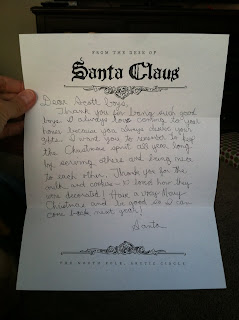 FROM THE DESK OF
Santa Claus
Dear Scott boys,
Thank you for being such good
boys. I always love coming to your
house because you always share your
I want you to remember to keep
the Christmas spirit all year long
by serving others and being nice
to each other. Thank you for the
milk and cookies - I loved how they
were decorated! Have a very Merry
Christmas and be good so I can
come back next year!
Santa
THE NORTH POLE, ARCTIC CIRCLE